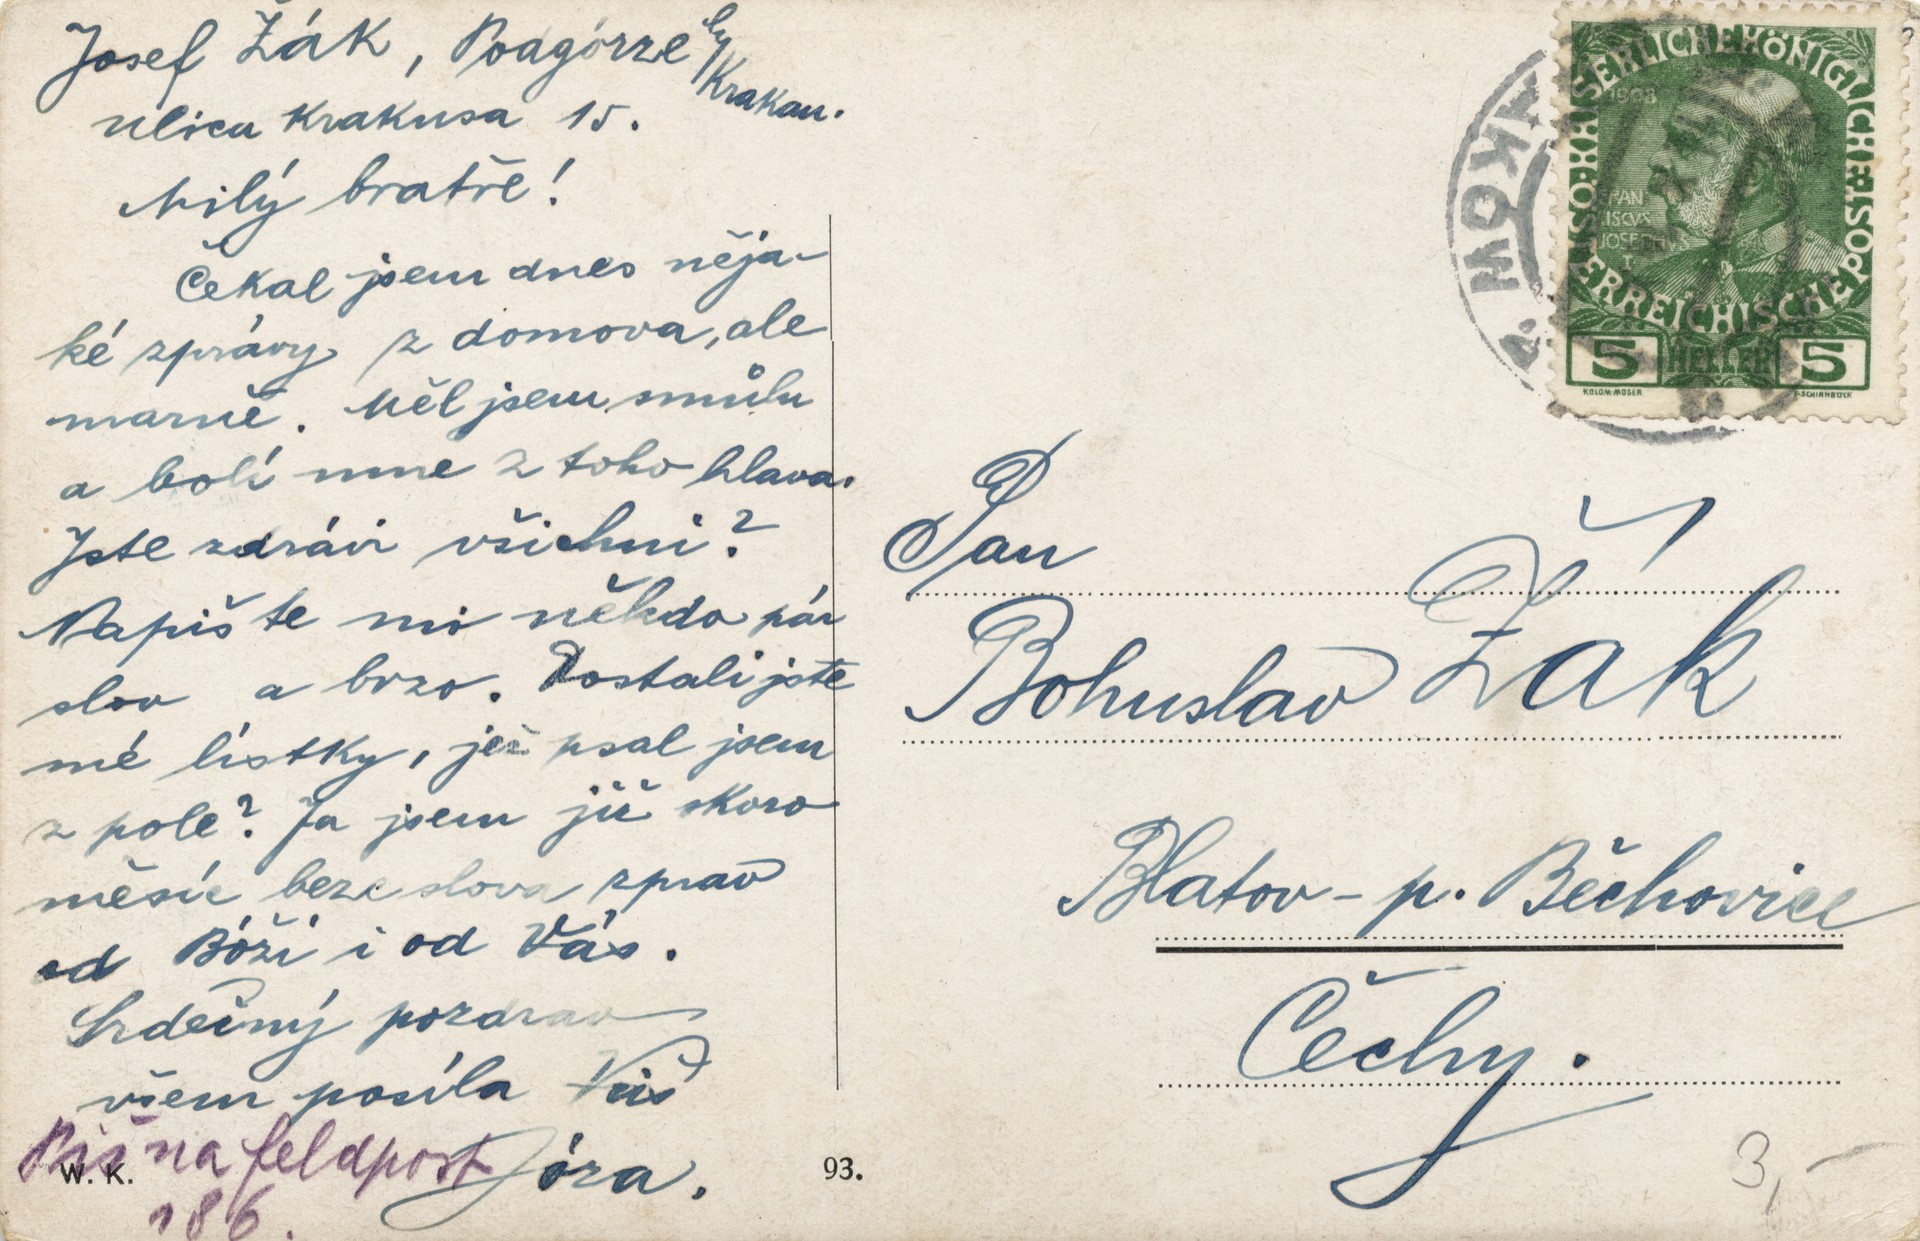 Josef Žák, Podgórze by
Krakau.
ulica Krakusa 15.
Milý bratře!
Čekal jsem dnes něja-
ké zprávy z domova, ale
marně. Měl jsem smůlu
a bolí mne z toho hlava.
Jste zdrávi všichni?
Napište mi někdo pár
slov a brzo. Dostali jste
mé lístky, jež psal jsem
z pole? Ja jsem již skoro
měsíc beze slova zpráv
od Bóži i od Vás.
Srdečný pozdrav
všem posílá Váš
Jóra.
Piš na feldpost
186.
W. K.
93.
Pan
Bohuslav Žák
Blatov - p. Běchovice
Čechy.
3,-
KAISERLICHE KÖNIGLICHE
ÖSTERREICHISCHE POST
1908
FRAN
ISCVS
JOSEPHVS
I
5 HELLER 5
KOLOM·MOSER
F·SCHIRNBÖCK
AKÓW